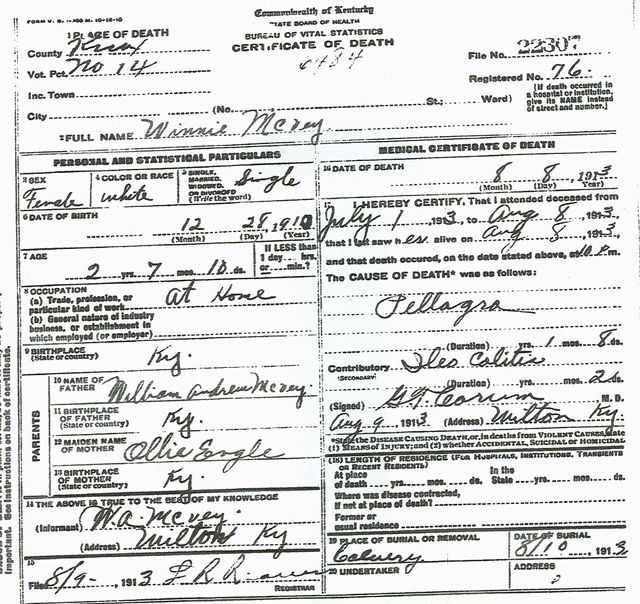 Commonwealth of Kentucky
STATE BOARD OF HEALTH
BUREAU OF VITAL STATISTICS
CERTIFICATE OF DEATH
6484
1 PLACE OF DEATH
County Knox
Vot. Pct. No 14
Inc. Town
City (No. St.; Ward)
File No. 22307
Registered No. 76.
(If death occurred in a hospital or institution, give its NAME instead of street and number.)
2 FULL NAME Winnie McVey
PERSONAL AND STATISTICAL PARTICULARS
3 SEX Female
4 COLOR OR RACE White
5 SINGLE, MARRIED, WIDOWED, OR DIVORCED (Write the word) Single
6 DATE OF BIRTH
12 28, 1910
(Month) (Day) (Year)
7 AGE
2 yrs. 7 mos. 10 ds.
If LESS than 1 day hrs. or min.?
8 OCCUPATION
(a) Trade, profession, or particular kind of work At Home
(b) General nature of industry business, or establishment in which employed (or employer)
9 BIRTHPLACE (State or country) Ky.
PARENTS
10 NAME OF FATHER William Andrew McVey.
11 BIRTHPLACE OF FATHER (State or country) Ky.
12 MAIDEN NAME OF MOTHER Ollie Engle
13 BIRTHPLACE OF MOTHER (State or country) Ky.
14 THE ABOVE IS TRUE TO THE BEST OF MY KNOWLEDGE
(Informant) W.A. McVey.
(Address) Wilton Ky
15
Filed 8/9-, 1913
REGISTRAR
MEDICAL CERTIFICATE OF DEATH
16 DATE OF DEATH
8 8, 1913
(Month) (Day) (Year)
17 I HEREBY CERTIFY, That I attended deceased from
July 1, 1913, to Aug 8, 1913,
that I last saw her alive on Aug 8, 1913,
and that death occurred, on the date stated above, at 10 P.m.
The CAUSE OF DEATH* was as follows:
Pellagra
(Duration) yrs. 1 mos. 8 ds.
Contributory Ileo Colitis
(SECONDARY)
(Duration) yrs. mos. 2 ds.
(Signed) G.T. Corum M. D.
Aug 9, 1913 (Address) Wilton Ky.
*State the DISEASE CAUSING DEATH, or, in deaths from VIOLENT CAUSES, state (1) MEANS OF INJURY; and (2) whether ACCIDENTAL, SUICIDAL OR HOMICIDAL.
(18) LENGTH OF RESIDENCE (FOR HOSPITALS, INSTITUTIONS, TRANSIENTS OR RECENT RESIDENTS)
At place of death yrs. mos. ds. In the State yrs. mos. ds.
Where was disease contracted, If not at place of death?
Former or usual residence
19 PLACE OF BURIAL OR REMOVAL
Calvery
DATE OF BURIAL
8/10, 1913
20 UNDERTAKER
ADDRESS
important. See instructions on back of certificate.